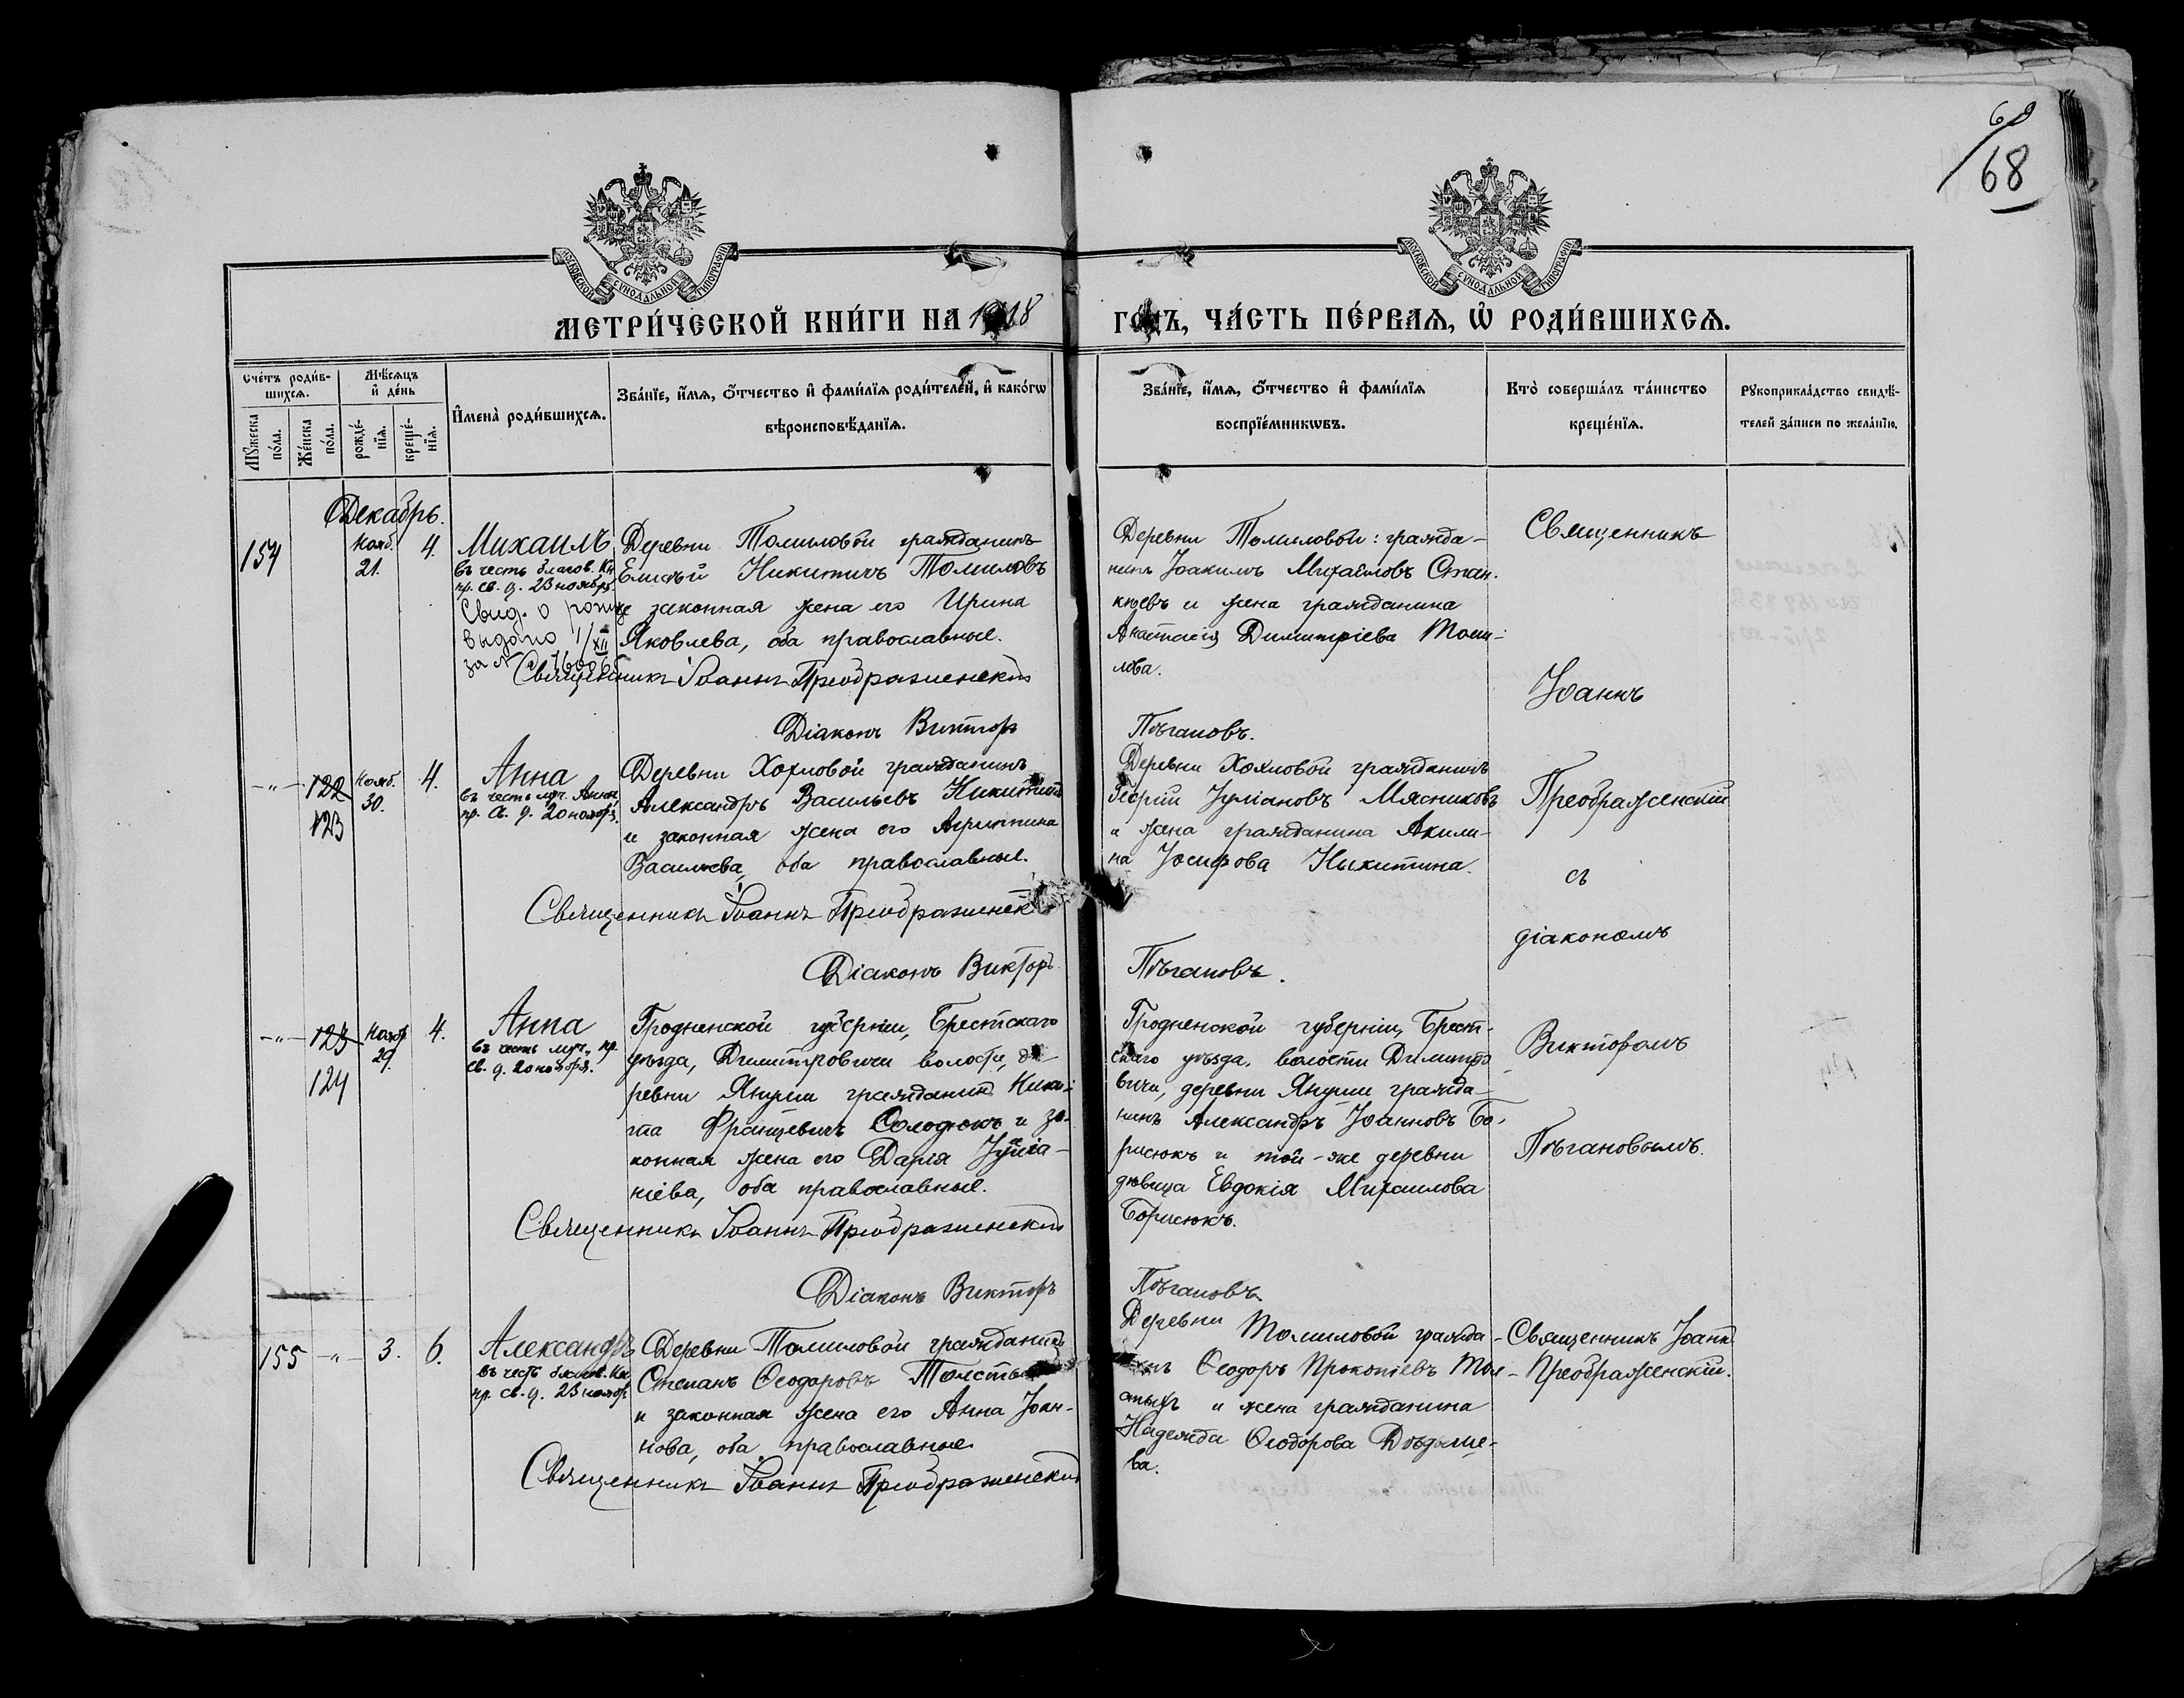 69
68
МОСКОВСКОЙ СѴНОДАЛЬНОЙ ТИПОГРАФІИ
МОСКОВСКОЙ СѴНОДАЛЬНОЙ ТИПОГРАФІИ
МЕТРИ́ЧЕСКОЙ КНИ́ГИ НА 1918
ГО́ДЪ, ЧА́СТЬ ПЕ́РВАѦ, Ѡ҆ РОДИ́ВШИХСѦ.
Счетъ роди́в-
шихсѧ.
Мꙋжеска по́ла.
Же́нска по́ла.
Мѣ́сѧцъ и҆ де́нь
рожде́-нїѧ.
креще́-нїѧ.
И҆мена̀ роди́вшихсѧ.
Зва́нїе, и҆́мѧ, ѻ҆́тчество и҆ фами́лїѧ роди́телей, и҆ како́гѡ
вѣроисповѣ́данїѧ.
Зва́нїе, и҆́мѧ, ѻ҆́тчество и҆ фами́лїѧ
воспрїе́мникѡвъ.
Кто̀ соверша́лъ та́инство
креще́нїѧ.
Рꙋкоприкла́дство свидѣ́-
телей за́писи по жела́нїю.
Декабрь.
154
Нояб.
21.
4.
Михаилъ
въ честь благов. Кн.
пр. св. д. 23 ноября.
Свид. о рожд
выдано 1/XII
за №
Деревни Томиловой гражданинъ
Елисѣй Никитичъ Томиловъ
и законная жена его Ирина
Яковлева, оба православные.
Священникъ Іоаннъ Преображенскій
Діаконъ Викторъ
Деревни Томиловой: гражда-
нинъ Іоакимъ Михаиловъ
и жена гражданина
Анастасія Димитріева Томи-
лова.
Пѣгановъ.
Священникъ
Іоаннъ
Преображенскій
съ
діакономъ
Викторомъ
Пѣгановымъ.
-"-
122
123
Нояб.
30.
4.
Анна
въ честь мч. Анны,
пр. св. д. 20 ноября.
Деревни Хохловой гражданинъ
Александръ Васильевъ Никитинъ
и законная жена его Агриппина
Васильева, оба православные.
Священникъ Іоаннъ Преображенскій
Діаконъ Викторъ
Деревни Хохловой гражданинъ
Георгій Іуліановъ Мясниковъ
и жена гражданина Акили-
на Іосифова Никитина.
Пѣгановъ.
-"-
123
124
Нояб.
29.
4.
Анна
въ честь муч., пр.
св. д. 20 ноября.
Гродненской губерніи, Брестскаго
уѣзда, Димитровичи волости, де
ревни Янушки гражданинъ Ники-
та Францевичъ Солодюкъ и за-
конная жена его Дарія Іуліа-
ніева, оба православные.
Священникъ Іоаннъ Преображенскій
Діаконъ Викторъ
Гродненской губерніи, Брест-
скаго уѣзда, волости Димитро
вичи, деревни гражда-
нинъ Александръ Іоанновъ Бо-
рисюкъ и той-же деревни
дѣвица Евдокія Михаилова
Борисюкъ.
Пѣгановъ.
155
-"-
3.
6.
Александръ
въ честь благов. Кн.
пр. св. д. 23 ноября
Деревни Томиловой гражданинъ
Степанъ Ѳеодоровъ Толстыхъ
и законная жена его Анна Іоан-
нова, оба православные.
Священникъ Іоаннъ Преображенскій
Деревни Томиловой гражда-
нинъ Ѳеодоръ Прокопіевъ Тол-
стыхъ и жена гражданина
Надежда Ѳеодорова
ва.
Священникъ Іоаннъ
Преображенскій.